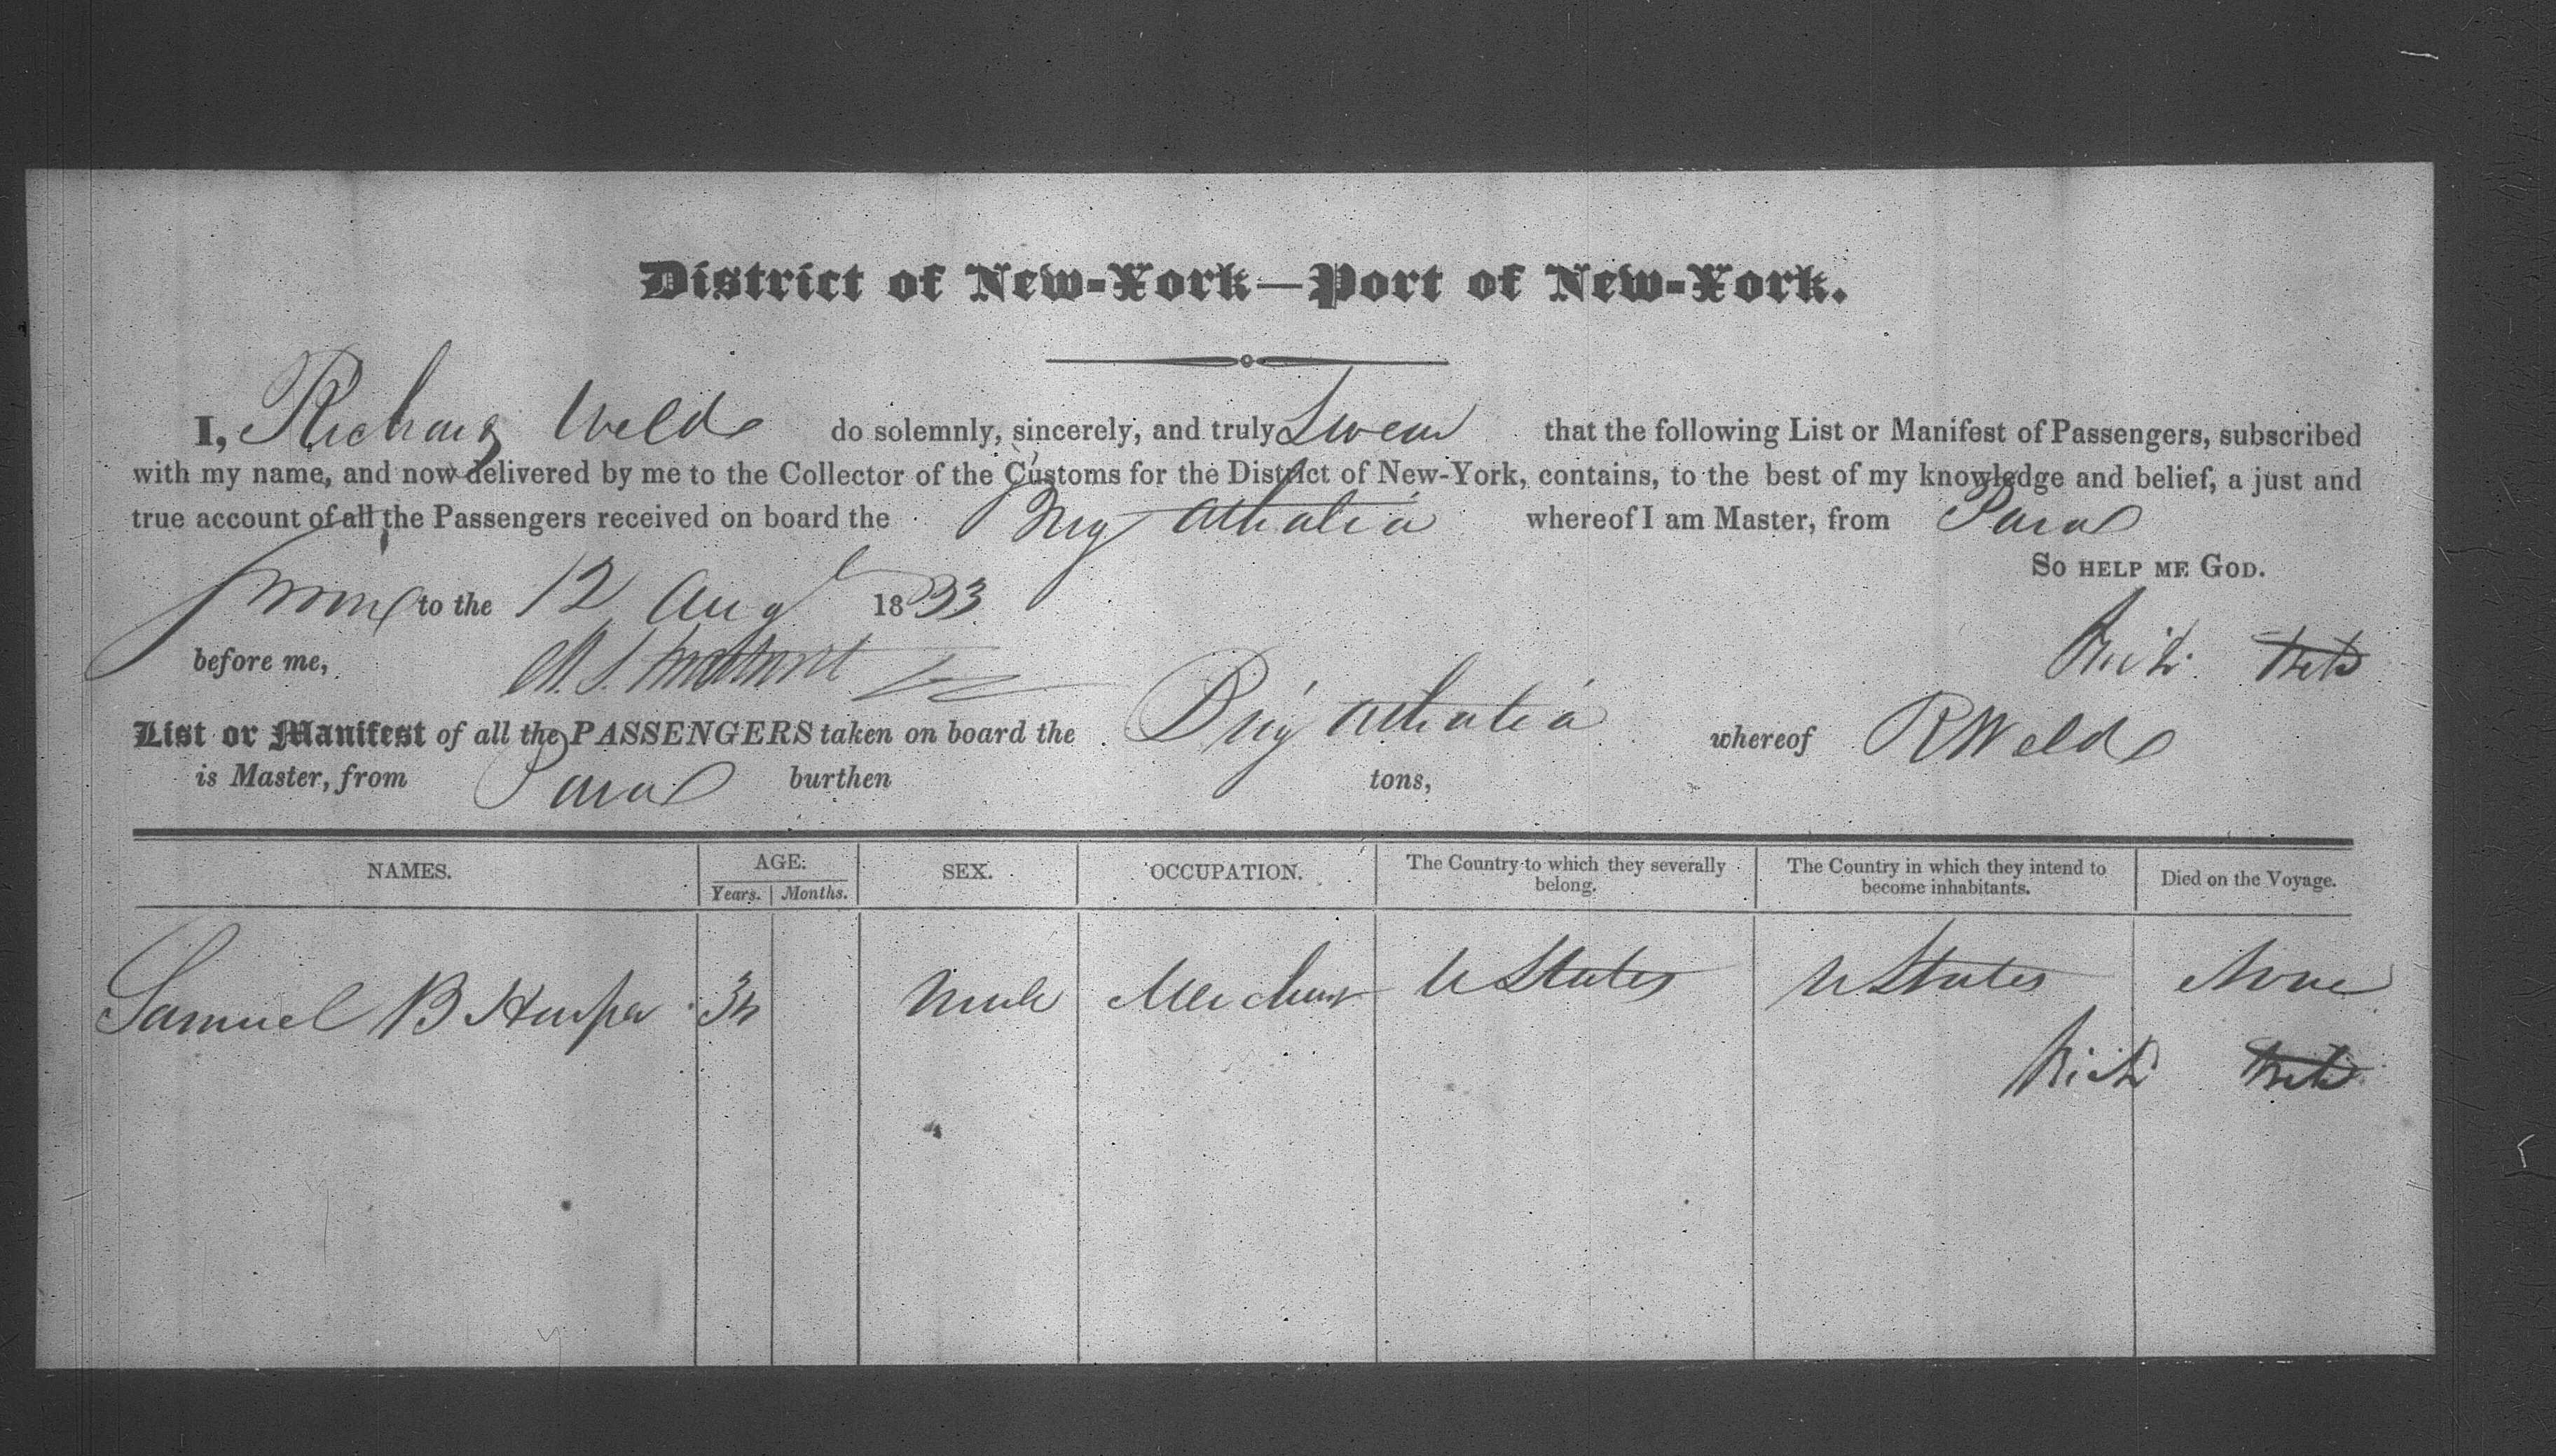 District of New-York—Port of New-York.
I, Richard Welds do solemnly, sincerely, and truly Swear that the following List or Manifest of Passengers, subscribed
with my name, and now delivered by me to the Collector of the Customs for the District of New-York, contains, to the best of my knowledge and belief, a just and
true account of all the Passengers received on board the Brig Athalia whereof I am Master, from Para
So help me God.
Sworn to the 12 Aug 1833
before me,
Rich
List or Manifest of all the PASSENGERS taken on board the Brig Athalia whereof R Welds
is Master, from Para burthen tons,
NAMES. AGE: SEX. OCCUPATION. The Country to which they severally belong. The Country in which they intend to become inhabitants. Died on the Voyage.
Years. Months.
Samuel B 34 Male Merchant U States U States None
Rich